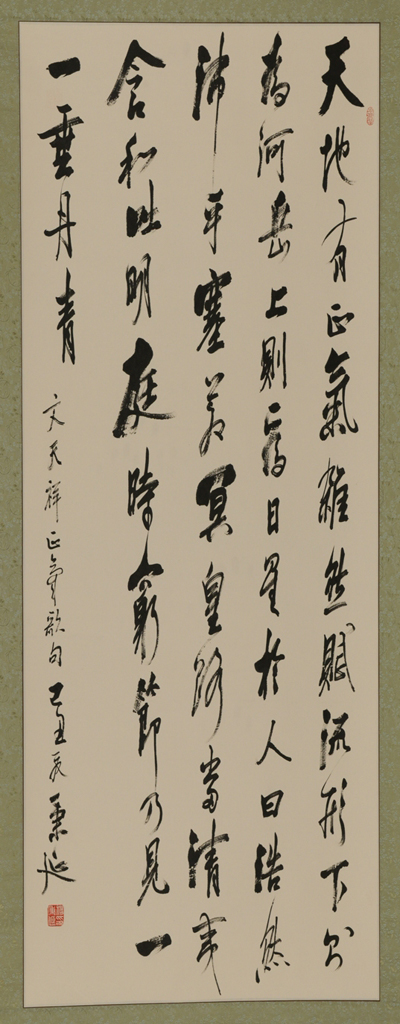 天地有正氣雜然賦流形下則
為河岳上則為日星於人曰浩然
沛乎塞蒼冥皇路當清夷
含和吐明庭時窮節乃見一
一垂丹青 文天祥正氣歌句 己丑